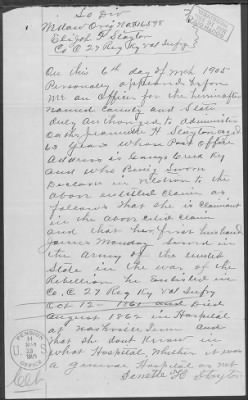 So Div
Widow Orig No 816598
Elijah Slayton
Co C 27 Reg Ky Vol Infy
On this 6th day of Mch 1905
Personally appeared before
me an officer for the hereinafter
named County and State
duly authorized to administer
Oaths Jeannette H Slayton aged
63 years whose Post office
Address is Gamps Creek Ky
and who Being Sworn
Declare in relation to the
above entitled claim as
follows that she is claimant
in the above cited claim
and that her first husband
James Monday served in
the Army of the United
State in the war of the
Rebellion he Enlisted in
Co. C. 27 Reg. Ky Vol Infy
Oct 12 1861 and Died
August 1862 in Hospital
at Nashville Tenn and
that she dont Know in
what Hospital, Whether it was
a General Hospital or not
H Slayton
PENSION
MAR
1905
OFFICE
U S